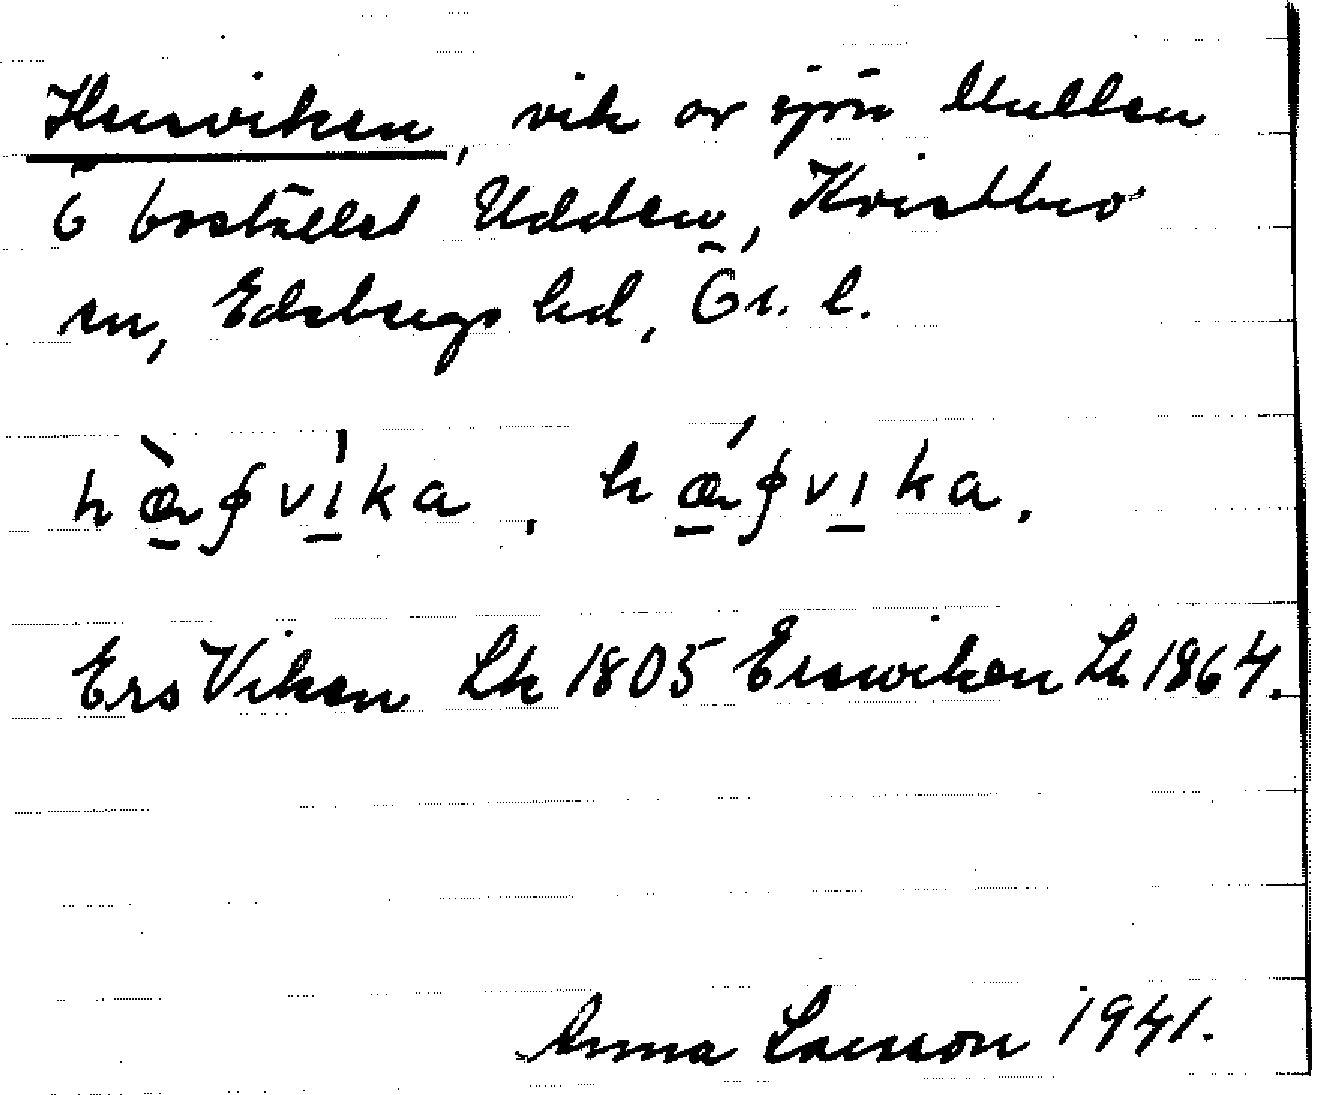 Hersviken, vik av sjön Multen
Ö bostället Udden, Kvistbro
sn, Edsbergs hd, Ör. l.
vika, vika.
Ers Viken Lk 1805 Erswiken Lk 1864.
Anna Larsson 1941.